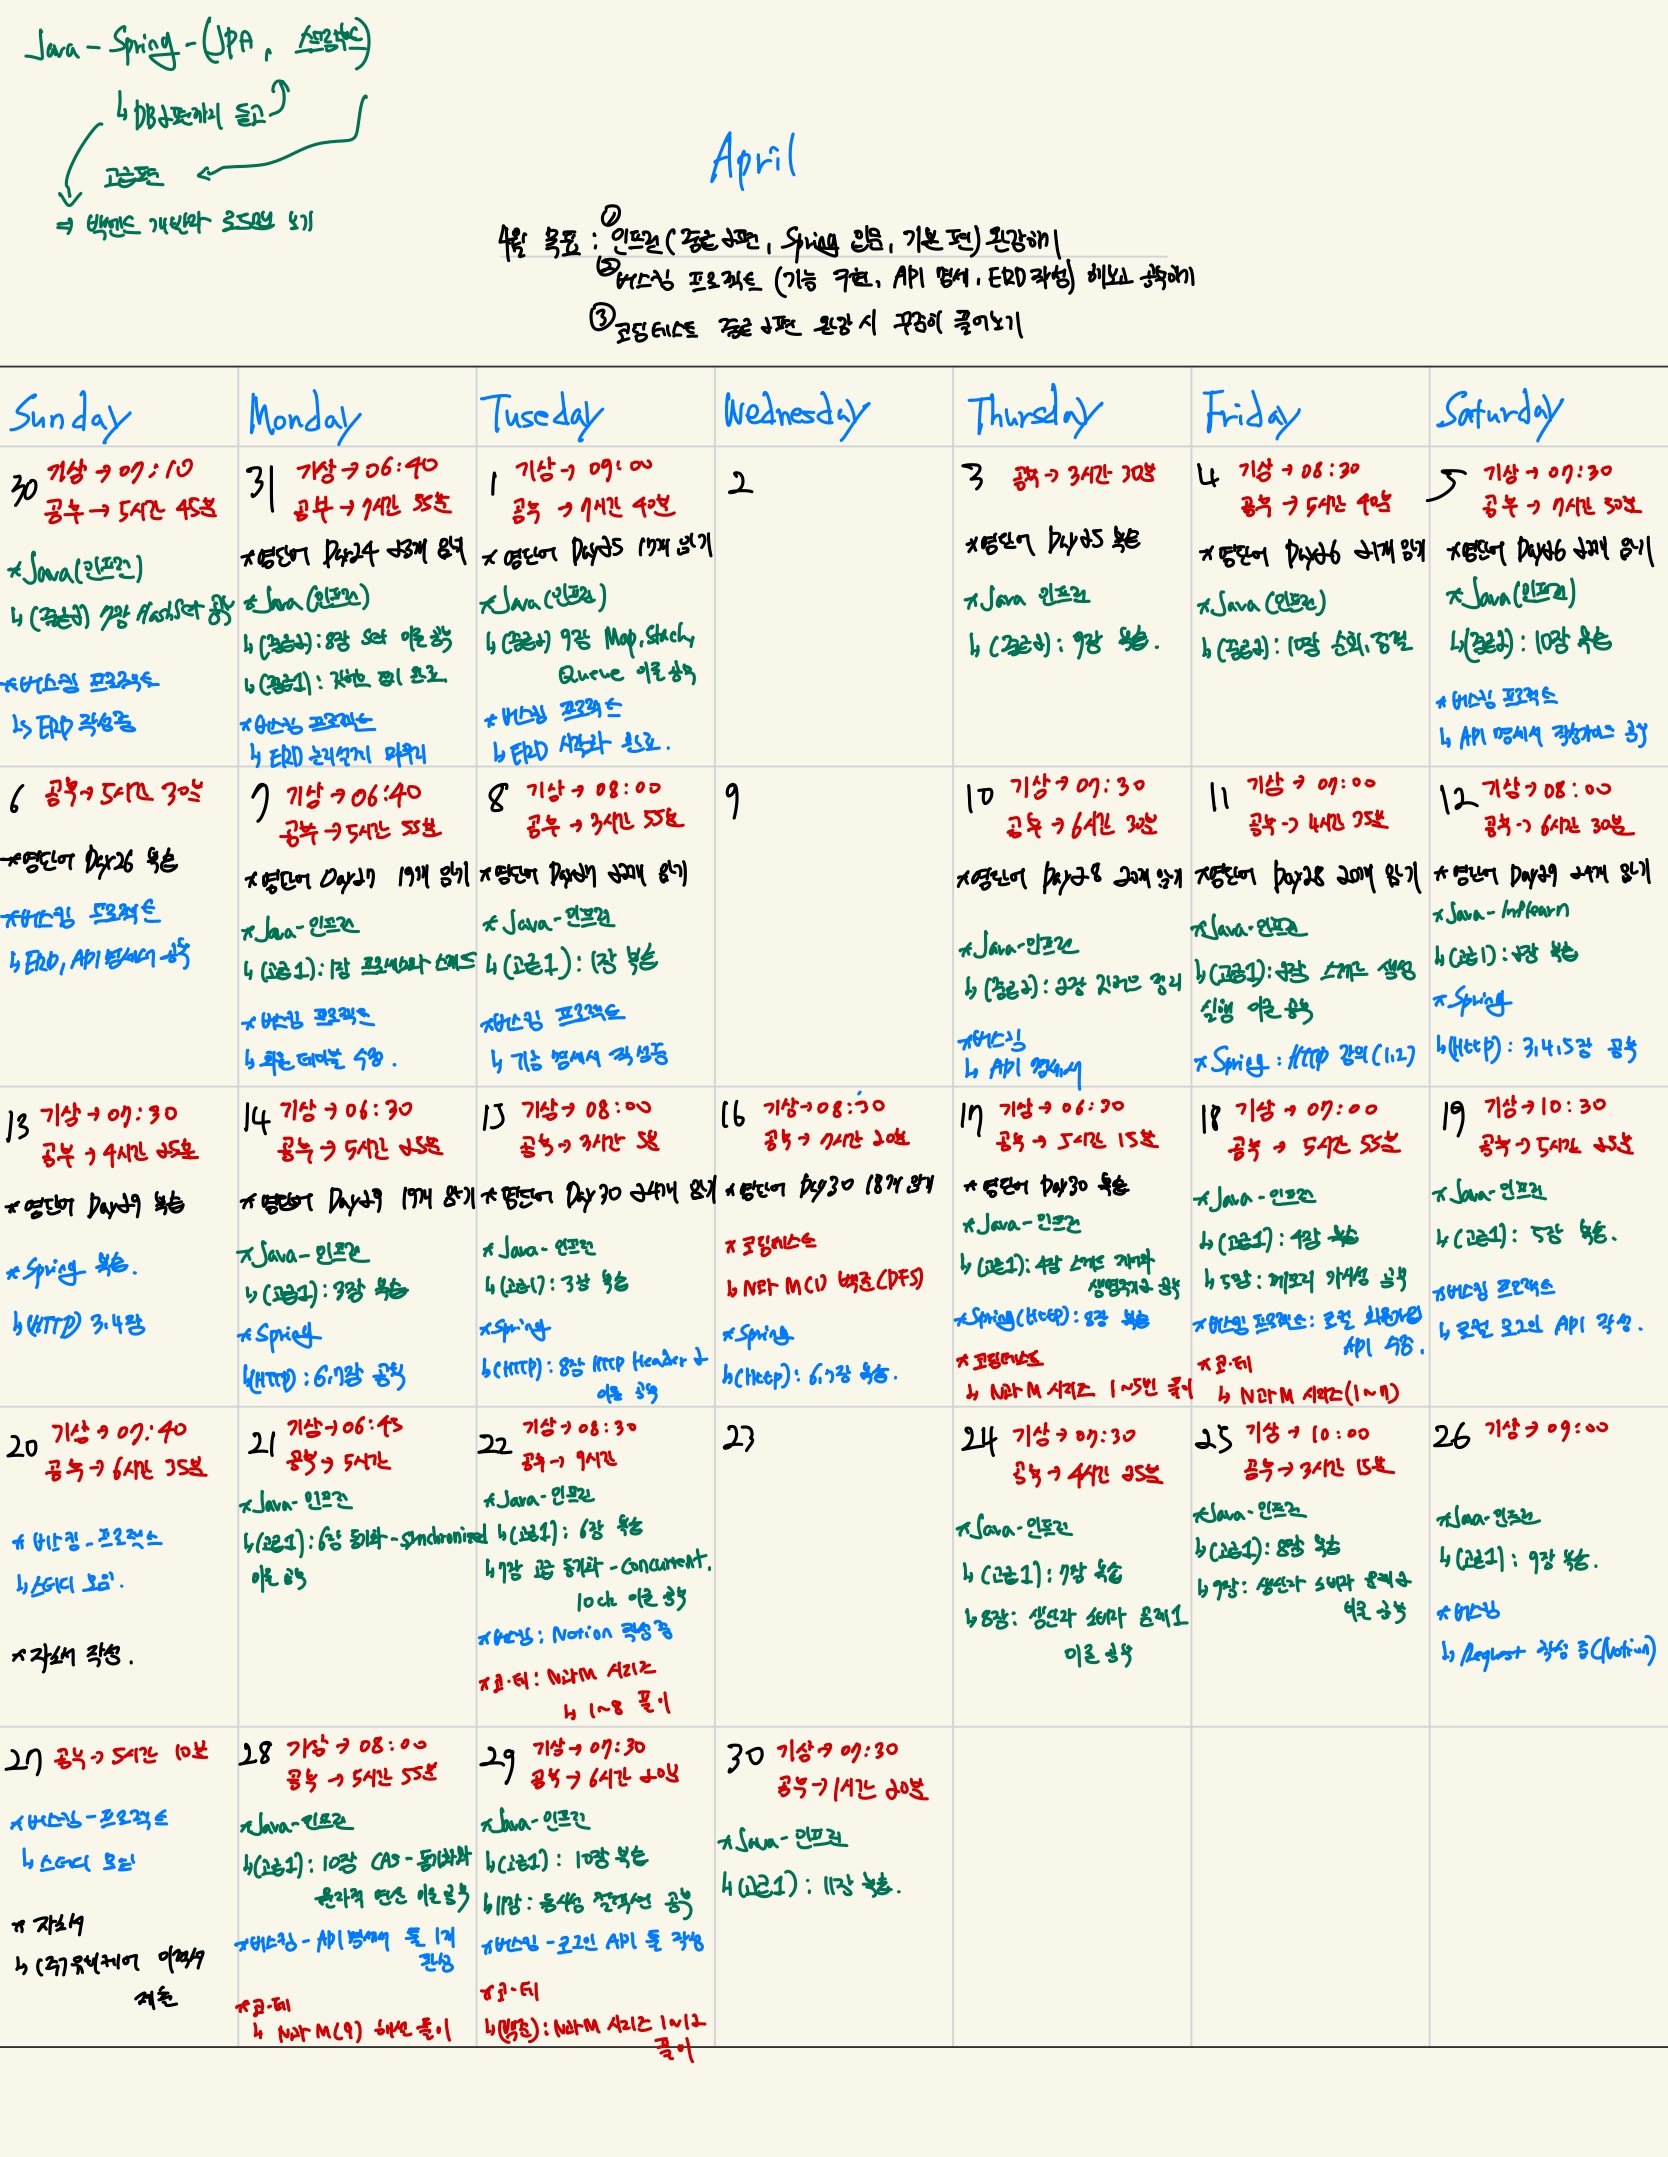 Java - Spring - (JPA, 스프링부트)
↳ DB 2편까지 듣고
고급편
⇒ 백엔드 개발자 로드맵 보기
April
4월 목표 : ① 인프런 (중급 2편, Spring 입문, 기본 편) 완강하기
② 버스킹 프로젝트 (기능 구현, API 명세, ERD 작성) 해보고 공부하기
③ 코딩테스트 중급 2편 완강 시 꾸준히 풀어보기
Sunday Monday Tuseday Wednesday Thursday Friday Saturday
30 기상 → 07:10
공부 → 5시간 45분
* Java (인프런)
↳ (중급2) 7장 HashSet 공부
* 버스킹 프로젝트
↳ ERD 작성중
31 기상 → 06:40
공부 → 7시간 55분
* 영단어 Day24 23개 암기
* Java (인프런)
↳ (중급2) : 8장 Set 이론 공부
↳ (중급1) : 깃허브 정리 완료.
* 버스킹 프로젝트
↳ ERD 논리설계 마무리
1 기상 → 09:00
공부 → 7시간 40분
* 영단어 Day25 17개 암기
* Java (인프런)
↳ (중급2) 9장 Map, Stack,
Queue 이론 공부
* 버스킹 프로젝트
↳ ERD 시각화 완료.
2
3 공부 → 3시간 30분
* 영단어 Day25 복습
* Java 인프런
↳ (중급2) : 9장 복습.
4 기상 → 08:30
공부 → 5시간 40분
* 영단어 Day26 21개 암기
* Java (인프런)
↳ (중급2) : 10장 순회, 정렬
5 기상 → 07:30
공부 → 7시간 50분
* 영단어 Day26 22개 암기
* Java (인프런)
↳ (중급2) : 10장 복습
* 버스킹 프로젝트
↳ API 명세서 작성 공부
6 공부 → 5시간 30분
* 영단어 Day26 복습
* 버스킹 프로젝트
↳ ERD, API 명세서 공부
7 기상 → 06:40
공부 → 5시간 55분
* 영단어 Day27 19개 암기
* Java - 인프런
↳ (고급1) : 1장 프로세스와 스레드
* 버스킹 프로젝트
↳ 회원 테이블 수정.
8 기상 → 08:00
공부 → 3시간 55분
* 영단어 Day27 22개 암기
* Java - 인프런
↳ (고급1) : 1장 복습
* 버스킹 프로젝트
↳ 기능 명세서 작성중
9
10 기상 → 07:30
공부 → 6시간 30분
* 영단어 Day28 20개 암기
* Java - 인프런
↳ (중급2) : 2장 깃허브 정리
* 버스킹
↳ API 명세서
11 기상 → 07:00
공부 → 4시간 35분
* 영단어 Day28 20개 암기
* Java - 인프런
↳ (고급1) : 2장 스레드 생성
실행 이론 공부
* Spring : HTTP 강의 (1,2)
12 기상 → 08:00
공부 → 6시간 30분
* 영단어 Day29 24개 암기
* Java - Inflearn
↳ (고급1) : 2장 복습
* Spring
↳ (HTTP) : 3,4,5장 공부
13 기상 → 07:30
공부 → 4시간 25분
* 영단어 Day29 복습
* Spring 복습.
↳ (HTTP) 3,4장
14 기상 → 06:30
공부 → 5시간 25분
* 영단어 Day29 19개 암기
* Java - 인프런
↳ (고급1) : 3장 복습
* Spring
↳ (HTTP) : 6,7장 공부
15 기상 → 08:00
공부 → 3시간 5분
* 영단어 Day30 24개 암기
* Java - 인프런
↳ (고급1) : 3장 복습
* Spring
↳ (HTTP) : 8장 HTTP Header 2
이론 공부
16 기상 → 08:30
공부 → 7시간 20분
* 영단어 Day30 18개 암기
* 코딩테스트
↳ N과 M (1) 백준 (DFS)
* Spring
↳ (Http) : 6,7장 복습.
17 기상 → 06:30
공부 → 5시간 15분
* 영단어 Day30 복습
* Java - 인프런
↳ (고급1) : 4장 스레드 제어와
생명주기2 공부
* Spring (Http) : 8장 복습
* 코딩테스트
↳ N과 M 시리즈 1~5번 풀이
18 기상 → 07:00
공부 → 5시간 55분
* Java - 인프런
↳ (고급1) : 4장 복습
↳ 5장 : 메모리 가시성 공부
* 버스킹 프로젝트 : 로컬 회원가입
API 수정.
* 코·테
↳ N과 M 시리즈 (1~7)
19 기상 → 10:30
공부 → 5시간 25분
* Java - 인프런
↳ (고급1) : 5장 복습.
* 버스킹 프로젝트
↳ 로컬 로그인 API 작성.
20 기상 → 07:40
공부 → 6시간 35분
* 버스킹 - 프로젝트
↳ 스터디 모임.
* 자소서 작성.
21 기상 → 06:45
공부 → 5시간
* Java - 인프런
↳ (고급1) : 6장 동기화 - Synchronized
이론 공부
22 기상 → 08:30
공부 → 9시간
* Java - 인프런
↳ (고급1) : 6장 복습
↳ 7장 고급 동기화 - Concurrent.
lock 이론 공부
* 버스킹 : Notion 작성중
* 코·테 : N과M 시리즈
↳ 1~8 풀이
23
24 기상 → 07:30
공부 → 4시간 25분
* Java - 인프런
↳ (고급1) : 7장 복습
↳ 8장 : 생산자 소비자 문제1
이론 공부
25 기상 → 10:00
공부 → 3시간 15분
* Java - 인프런
↳ (고급1) : 8장 복습
↳ 9장 : 생산자 소비자 문제2
이론 공부
26 기상 → 09:00
* Java - 인프런
↳ (고급1) : 9장 복습.
* 버스킹
↳ Request 작성 중 (Notion)
27 공부 → 5시간 10분
* 버스킹 - 프로젝트
↳ 스터디 모임
* 자소서
↳ (주)유비케어 이력서
제출
28 기상 → 08:00
공부 → 5시간 55분
* Java - 인프런
↳ (고급1) : 10장 CAS - 동기화와
원자적 연산 이론 공부
* 버스킹 - API 명세서 툴 1개
완성
* 코·테
↳ N과 M (9) 해석 풀이
29 기상 → 07:30
공부 → 6시간 20분
* Java - 인프런
↳ (고급1) : 10장 복습
↳ 11장 : 동시성 컬렉션 공부
* 버스킹 - 로그인 API 툴 작성
* 코·테
↳ (백준) : N과M 시리즈 1~12
풀이
30 기상 → 07:30
공부 → 1시간 20분
* Java - 인프런
↳ (고급1) : 11장 복습.